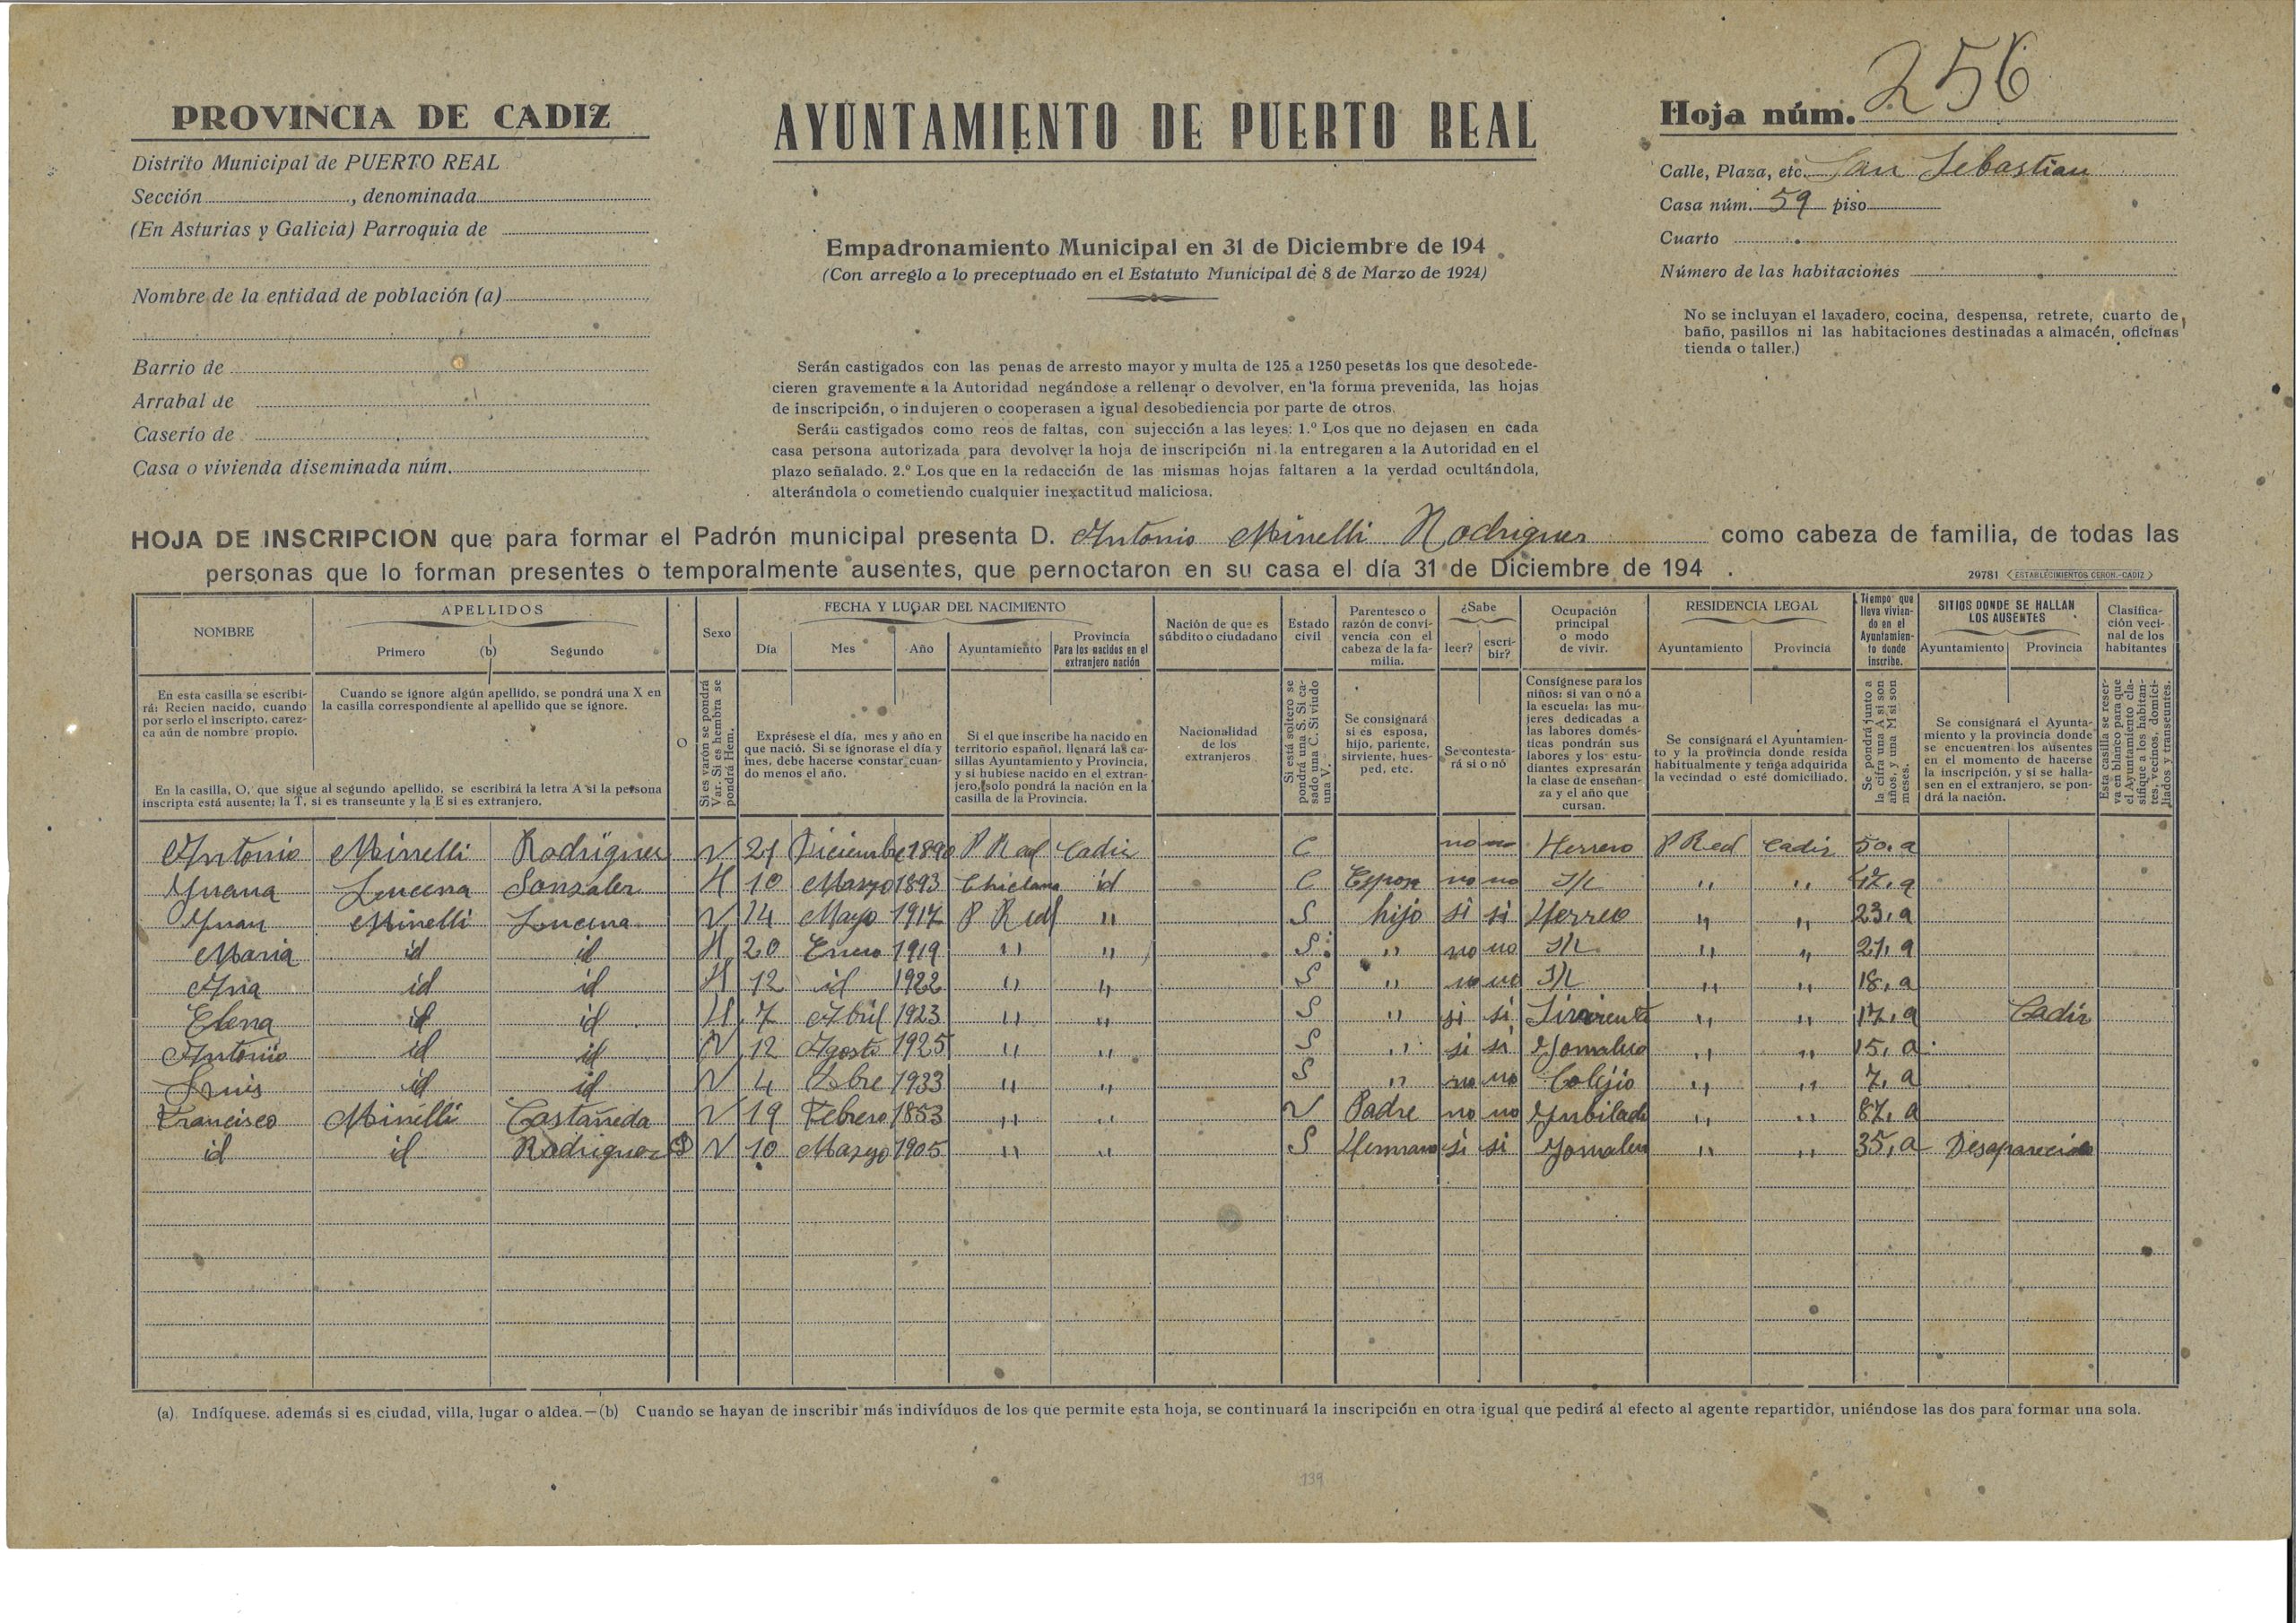 PROVINCIA DE CADIZ
Distrito Municipal de PUERTO REAL
Sección , denominada
(En Asturias y Galicia) Parroquia de
Nombre de la entidad de población (a)
Barrio de
Arrabal de
Caserío de
Casa o vivienda diseminada núm.
AYUNTAMIENTO DE PUERTO REAL
Empadronamiento Municipal en 31 de Diciembre de 194 .
(Con arreglo a lo preceptuado en el Estatuto Municipal de 8 de Marzo de 1924)
Serán castigados con las penas de arresto mayor y multa de 125 a 1250 pesetas los que desobede-
cieren gravemente a la Autoridad negándose a rellenar o devolver, en la forma prevenida, las hojas
de inscripción, o indujeren o cooperasen a igual desobediencia por parte de otros.
Serán castigados como reos de faltas, con sujección a las leyes: 1.º Los que no dejasen en cada
casa persona autorizada para devolver la hoja de inscripción ni la entregaren a la Autoridad en el
plazo señalado. 2.º Los que en la redacción de las mismas hojas faltaren a la verdad ocultándola,
alterándola o cometiendo cualquier inexactitud maliciosa.
Hoja núm. 256
Calle, Plaza, etc. San Sebastian
Casa núm. 59 piso
Cuarto
Número de las habitaciones
No se incluyan el lavadero, cocina, despensa, retrete, cuarto de
baño, pasillos ni las habitaciones destinadas a almacén, oficinas
tienda o taller.)
HOJA DE INSCRIPCION que para formar el Padrón municipal presenta D. Antonio Minelli Rodriguez como cabeza de familia, de todas las
personas que lo forman presentes o temporalmente ausentes, que pernoctaron en su casa el día 31 de Diciembre de 194 .
29781 (ESTABLECIMIENTOS CERON.-CADIZ)
NOMBRE
APELLIDOS
Primero (b) Segundo
O
Sexo
FECHA Y LUGAR DEL NACIMIENTO
Día Mes Año Ayuntamiento
Provincia
Para los nacidos en el
extranjero nación
Nación de que es
súbdito o ciudadano
Estado
civil
Parentesco o
razón de convi-
vencia con el
cabeza de la fa-
milia.
¿Sabe
leer? escri-
bir?
Ocupación
principal
o modo
de vivir.
RESIDENCIA LEGAL
Ayuntamiento Provincia
Tiempo que
lleva vivien-
do en el
Ayuntamien-
to donde
inscribe.
SITIOS DONDE SE HALLAN
LOS AUSENTES
Ayuntamiento Provincia
Clasifica-
ción veci-
nal de los
habitantes
En esta casilla se escribi-
rá: Recien nacido, cuando
por serlo el inscripto, carez-
ca aún de nombre propio.
Cuando se ignore algún apellido, se pondrá una X en
la casilla correspondiente al apellido que se ignore.
En la casilla, O, que sigue al segundo apellido, se escribirá la letra A si la persona
inscripta está ausente; la T, si es transeunte y la E si es extranjero.
Si es varón se pondrá
Var. Si es hembra se
pondrá Hem.
Expresese el día, mes y año en
que nació. Si se ignorase el día y
mes, debe hacerse constar cuan-
do menos el año.
Si el que inscribe ha nacido en
territorio español, llenará las ca-
sillas Ayuntamiento y Provincia,
y si hubiese nacido en el extran-
jero, solo pondrá la nación en la
casilla de la Provincia.
Nacionalidad
de los
extranjeros
Si está soltero se
pondrá una S. Si ca-
sado una C. Si viudo
una V.
Se consignará
si es esposa,
hijo, pariente,
sirviente, hues-
ped, etc.
Se contesta-
rá si o nó
Consígnese para los
niños: si van o nó a
la escuela: las mu-
jeres dedicadas a
las labores domés-
ticas pondrán sus
labores y los estu-
diantes expresarán
la clase de enseñan-
za y el año que
cursan.
Se consignará el Ayuntamien-
to y la provincia donde resida
habitualmente y tenga adquirida
la vecindad o esté domiciliado.
Se pondrá junto a
la cifra una A si son
años, y una M si son
meses.
Se consignará el Ayunta-
miento y la provincia donde
se encuentren los ausentes
en el momento de hacerse
la inscripción, y si se halla-
sen en el extranjero, se pon-
drá la nación.
Esta casilla se reser-
va en blanco para que
el Ayuntamiento cla-
sifique a los habitan-
tes, vecinos, domici-
liados y transeuntes.
Antonio Minelli Rodriguez V 21 Diciembre 1890 P Real Cadiz C no no Herrero P Real Cadiz 50, a
Juana Lucena Gonzalez H 10 Marzo 1893 Chiclana id C Esposa no no S/L " " 47, a
Juan Minelli Lucena V 14 Mayo 1917 P Real " S hijo si si Herrero " " 23, a
Maria id id H 20 Enero 1919 " " S " no no S/L " " 21, a
Ana id id H 12 id 1922 " " S " no no S/L " " 18, a
Elena id id H 7 Abril 1923 " " S " si si Sirvienta " " 17, a Cadiz
Antonio id id V 12 Agosto 1925 " " S " si si Jornalero " " 15, a
Luis id id V 4 1933 " " S " no no Colejio " " 7, a
Francisco Minelli Castañeda V 19 Febrero 1853 " " V Padre no no Jubilado " " 87, a
id id Rodriguez V 10 Marzo 1905 " " S Hermano si si Jornalero " " 35, a Desaparecido
(a) Indíquese, además si es ciudad, villa, lugar o aldea.—(b) Cuando se hayan de inscribir más indivíduos de los que permite esta hoja, se continuará la inscripción en otra igual que pedirá al efecto al agente repartidor, uniéndose las dos para formar una sola.
139